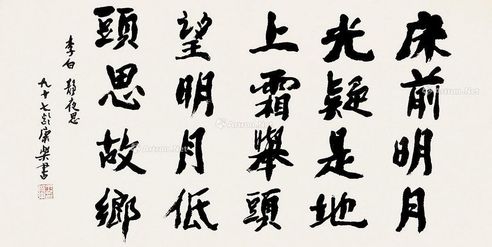 床前明月
光疑是地
上霜舉頭
望明月低
頭思故鄉
李白 靜夜思
九十七 康樂書